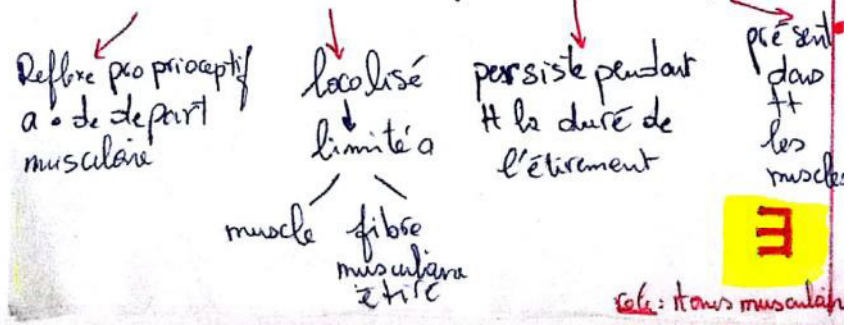 Reflexe proprioceptif
a • de depart
musculaire
localisé
limité a
muscle
fibre
musculaire
étiré
persiste pendant
tt la duré de
l'étirement
présent
dans
tt
les
muscles
∃
role: tonus musculair